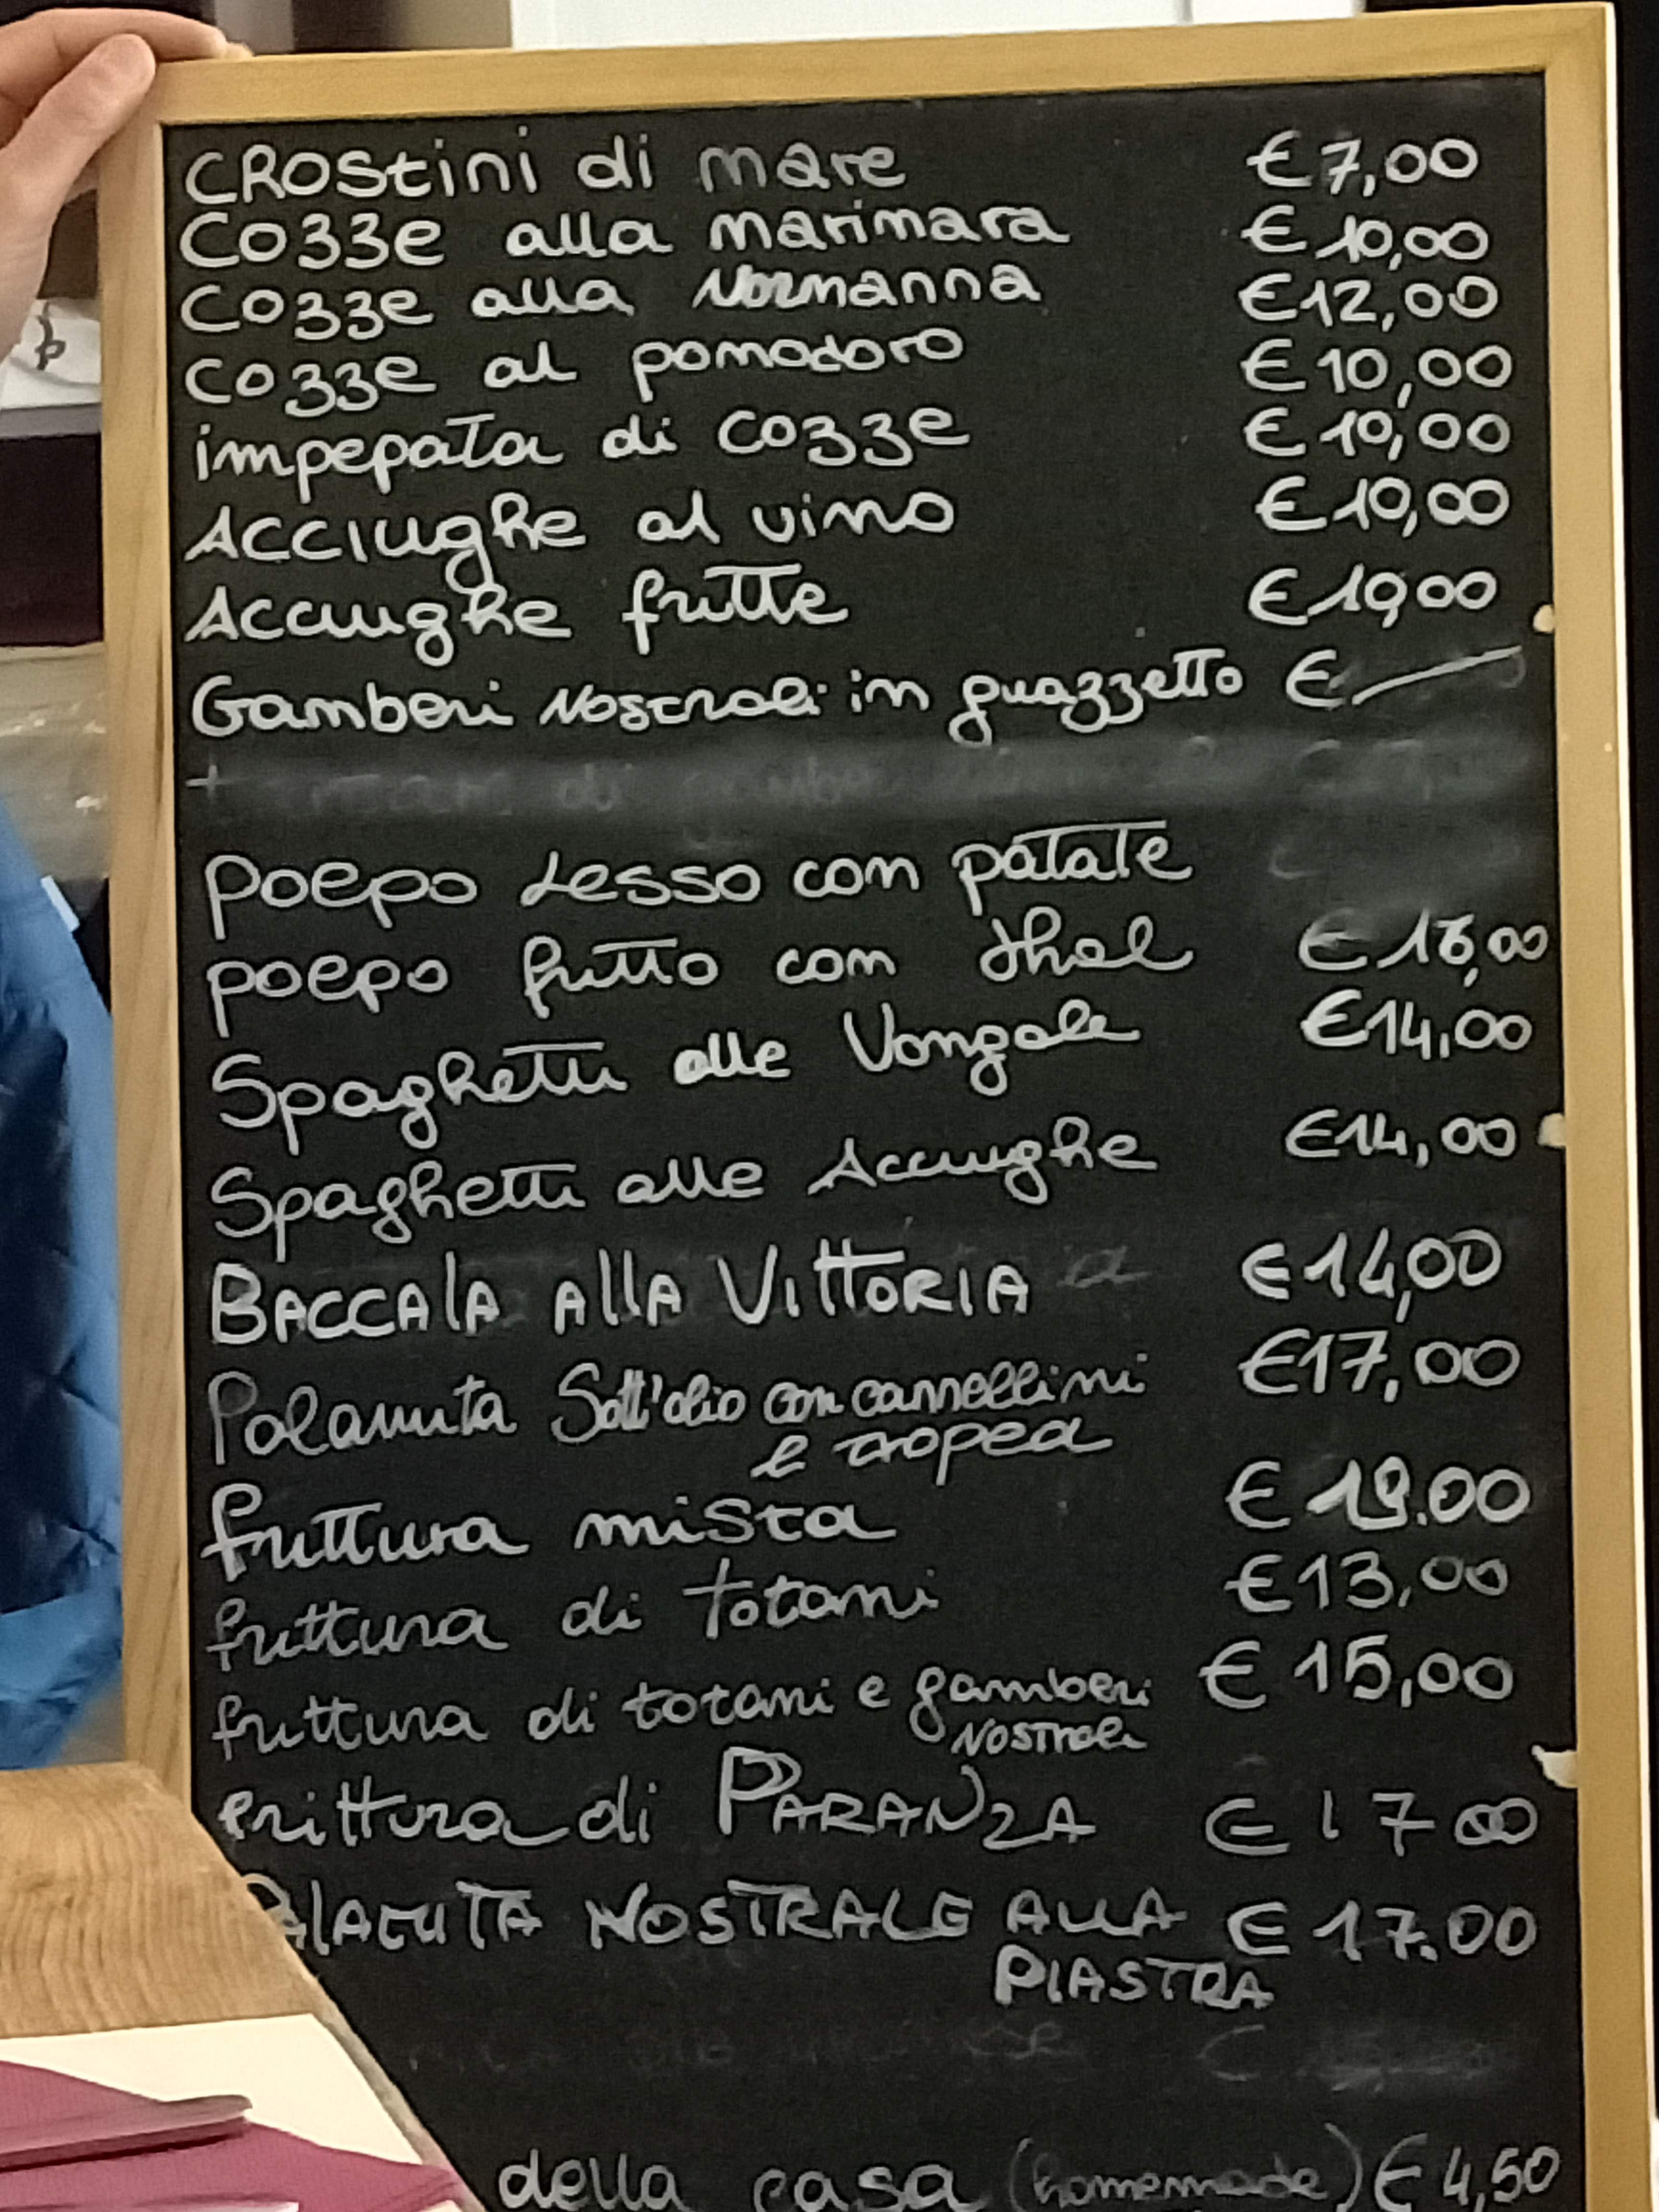 CROStini di mare € 7,00
Cozze alla marinara € 10,00
Cozze alla Normanna € 12,00
Cozze al pomodoro € 10,00
impepata di cozze € 10,00
Acciughe al vino € 10,00
Acciughe fritte € 10,00
Gamberi Nostrali in guazzetto €
polpo Lesso con patate
polpo fritto con dhal € 16,00
Spaghetti alle Vongole € 14,00
Spaghetti alle Acciughe € 14,00
BACCAlA AllA VittORIA € 14,00
Palamita Sott'olio con cannellini € 17,00
e tropea
frittura mista €
frittura di totani € 13,00
frittura di totani e gamberi € 15,00
Nostrali
frittura di PARANZA € 17 00
NOSTRALE ALLA € 17.00
PIASTRA
della casa (homemade) € 4,50